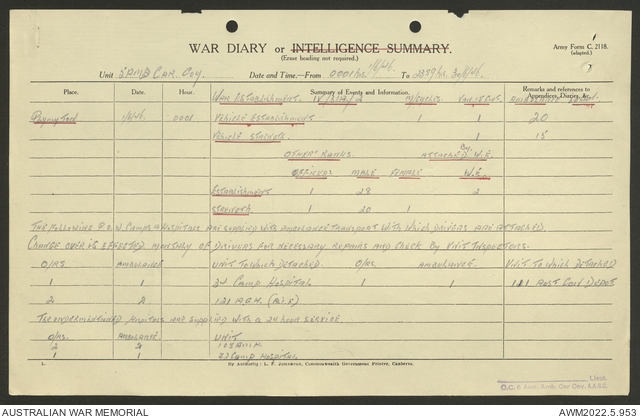 WAR DIARY or INTELLIGENCE SUMMARY.
(Erase heading not required.)
Army Form C. 2118.
(adapted.)
Unit AMB CAR. Coy. Date and Time—From 0001 hrs. 1/6/46. To 2359 hr. 30/6/46.
Place. Date. Hour. Summary of Events and Information. Remarks and references to Appendices, Diaries, &c.
WAR ESTABLISHMENT. M/CYCLES
1/6/46. 0001 VEHICLE ESTABLISHMENT 1 1 20
VEHICLE STRENGTH. 1 15
OTHER RANKS. ATTACHED W.E.
OFFICERS MALE FEMALE W.E.
ESTABLISHMENT 1 28 2
STRENGTH. 1 20 1
THE FOLLOWING P.O.W. CAMPS & HOSPITALS ARE SUPPLIED WITH AMBULANCE TRANSPORT WITH WHICH DRIVERS ARE ATTACHED.
CHANGE OVER IS EFFECTED MONTHLY OF DRIVERS FOR NECESSARY REPAIRS AND CHECK BY UNIT INSPECTORS.
O/RS AMBULANCE UNIT TO WHICH DETACHED. O/RS. AMBULANCES. UNIT TO WHICH DETACHED
1 1 24 CAMP HOSPITAL. 1 1 111 AUST. CONV. DEPOT
2 2 121 A.G.H. (A.I.F)
THE UNDERMENTIONED HOSPITALS ARE SUPPLIED WITH A 24 HOUR SERVICE.
O/RS. AMBULANCE. UNIT
2 2
1 1 CAMP HOSPITAL.
L. By Authority: L. F. Johnston, Commonwealth Government Printer, Canberra.
Lieut.
Amb. Car Coy. A.A.S.C.
AUSTRALIAN WAR MEMORIAL
AWM2022.5.953